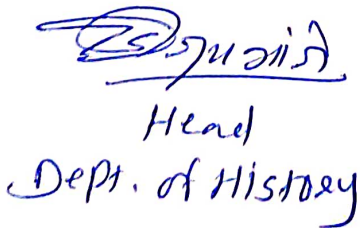 Head
Dept. of History